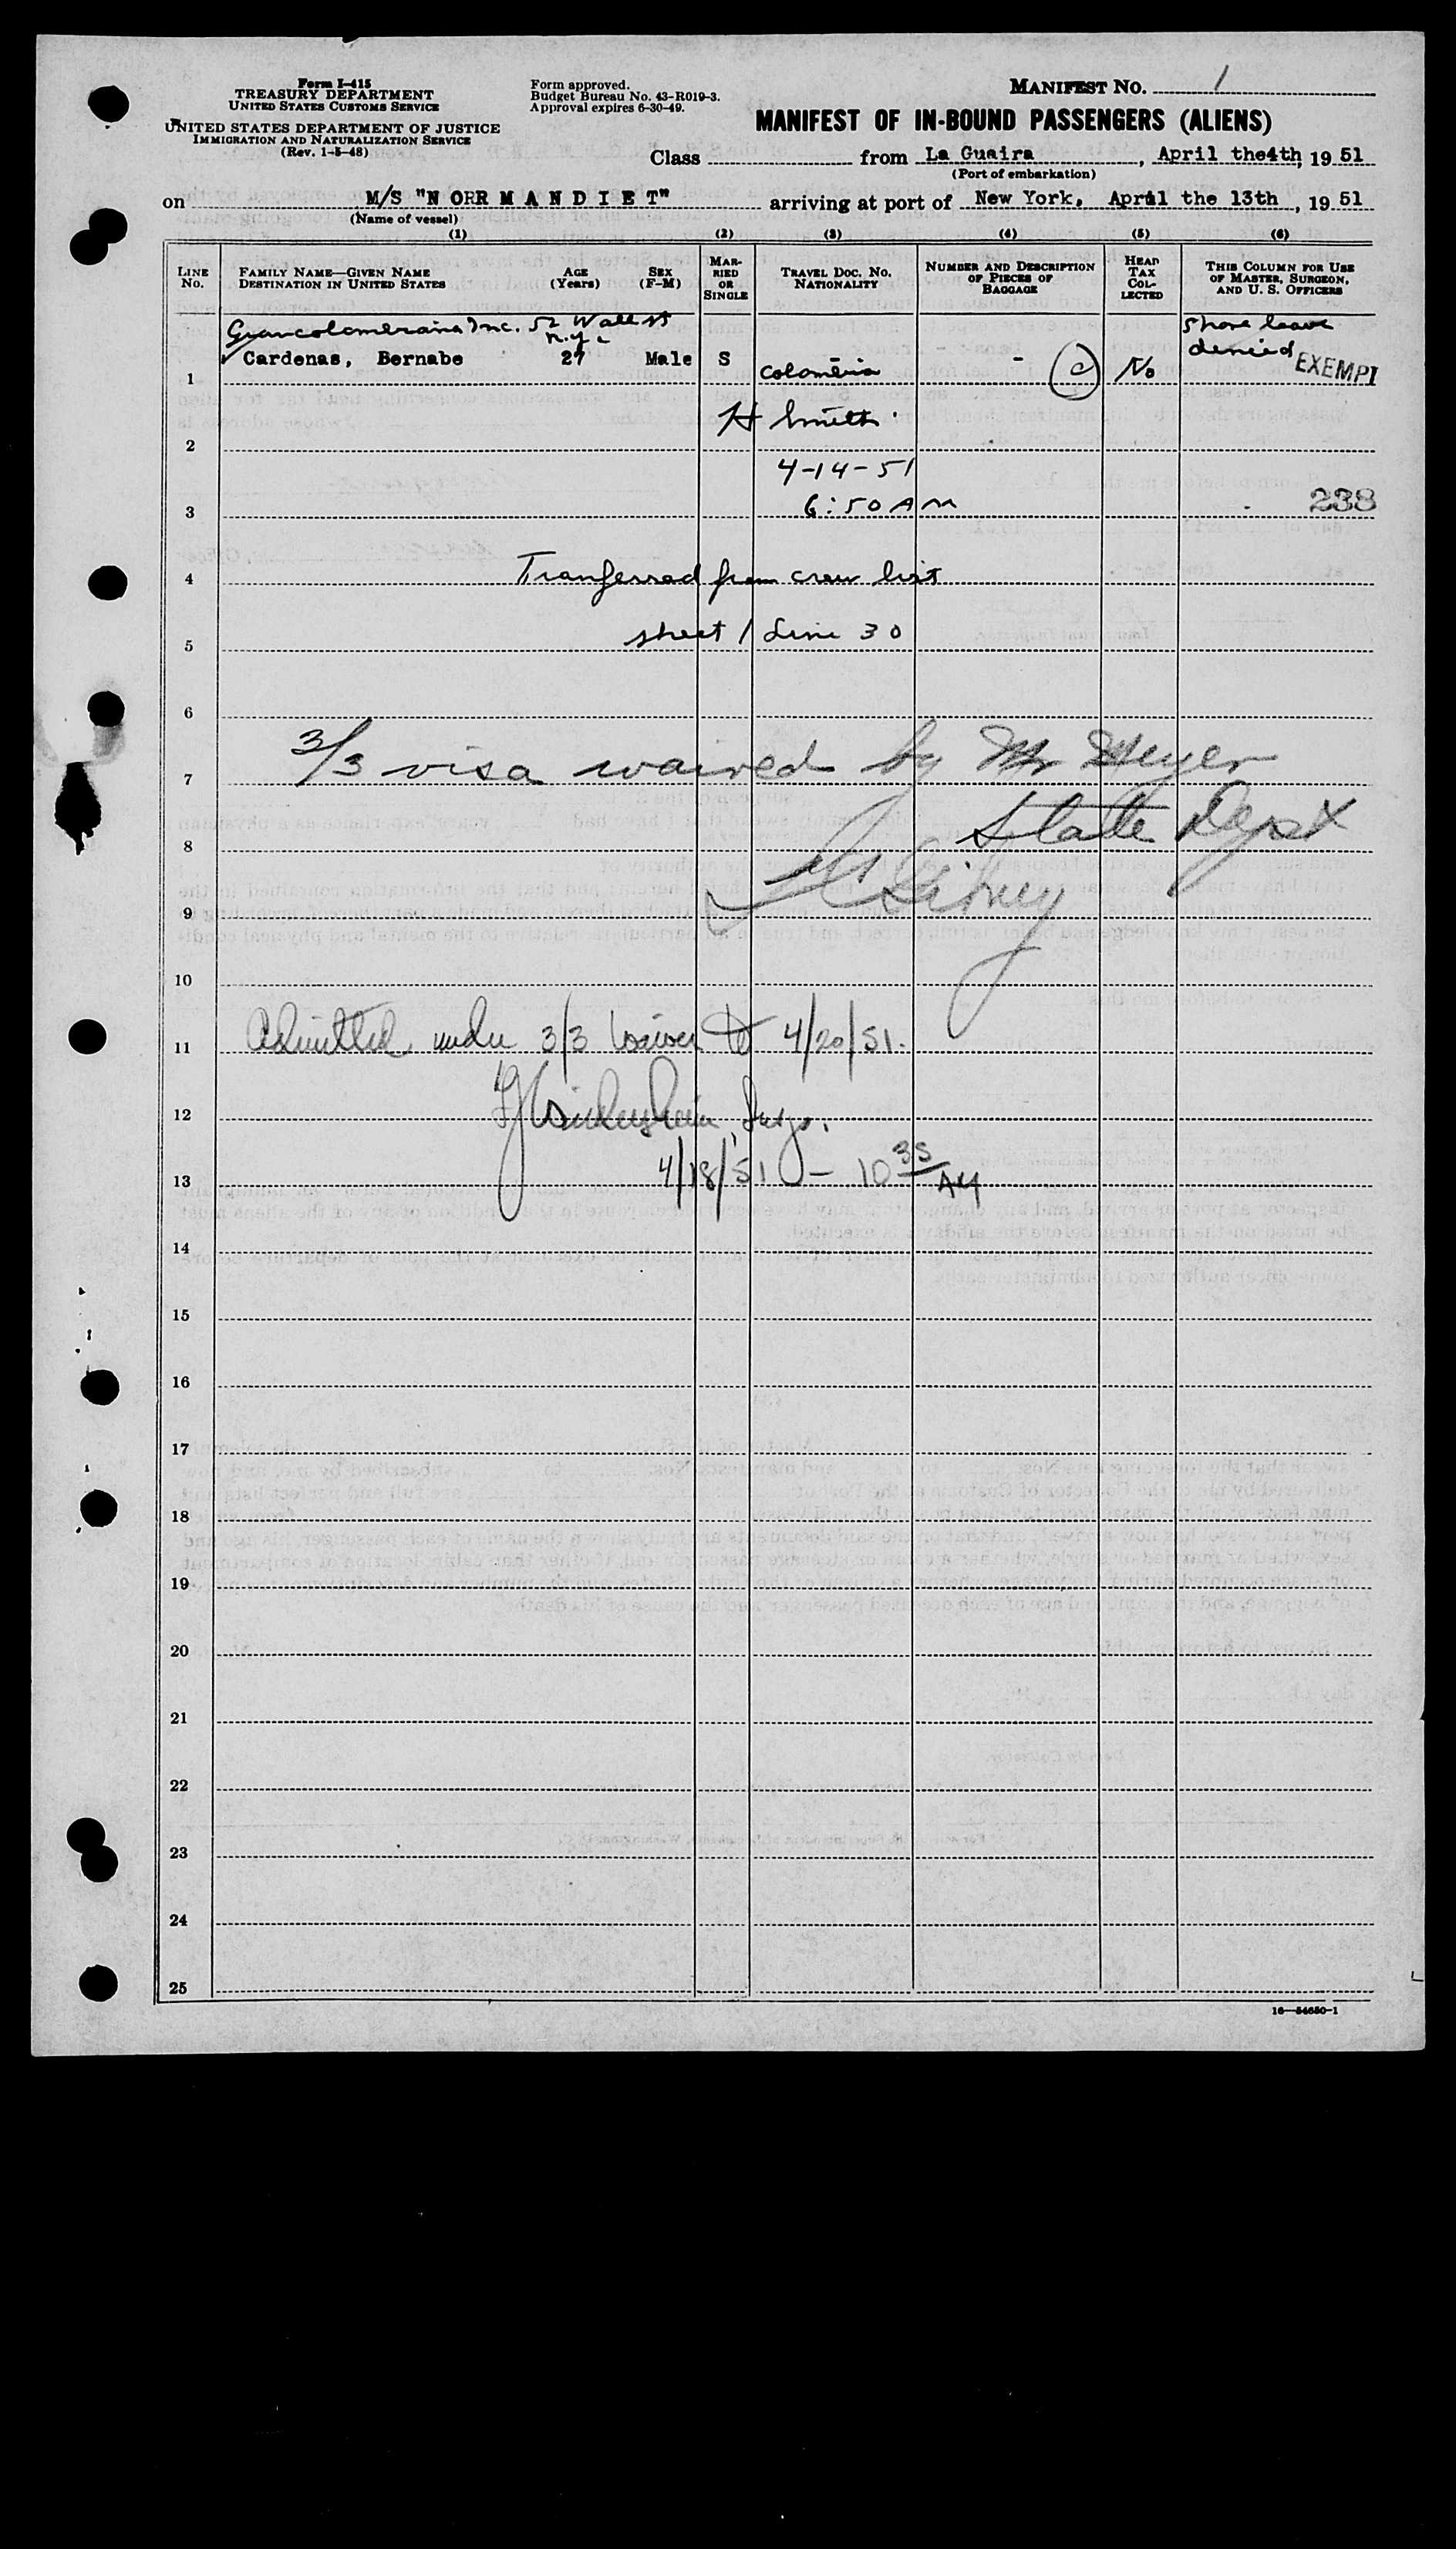 Form I-415
TREASURY DEPARTMENT
UNITED STATES CUSTOMS SERVICE
UNITED STATES DEPARTMENT OF JUSTICE
IMMIGRATION AND NATURALIZATION SERVICE
(Rev. 1-5-48)
Form approved.
Budget Bureau No. 43-R019-3.
Approval expires 6-30-49.
MANIFEST NO. 1
MANIFEST OF IN-BOUND PASSENGERS (ALIENS)
Class from La Guaira, April the4th, 19 51
(Port of embarkation)
on M/S "N ORR M A N D I E T" arriving at port of New York, April the 13th, 19 51
(Name of vessel)
(1) (2) (3) (4) (5) (6)
LINE No.
FAMILY NAME—GIVEN NAME
DESTINATION IN UNITED STATES
AGE (Years)
SEX (F-M)
MARRIED OR SINGLE
TRAVEL DOC. NO.
NATIONALITY
NUMBER AND DESCRIPTION OF PIECES OF BAGGAGE
HEAD TAX COLLECTED
THIS COLUMN FOR USE OF MASTER, SURGEON, AND U. S. OFFICERS
Inc. 52 Wall St
N.Y.C
Shore leave
denied
1 Cardenas, Bernabe 27 Male S Colombia - C No EXEMPT
2 H Smith
4-14-51
3 6:50 AM 238
4 Tranferred from crew list
5 sheet 1 Line 30
6
7 3/3 visa waived by Mr Heyer
8 State Dept
9
10
11 Admitted under 3/3 waiver to 4/20/51.
12 Insp.
13 4/18/51 - 10 35 AM
14
15
16
17
18
19
20
21
22
23
24
25
16—54650-1